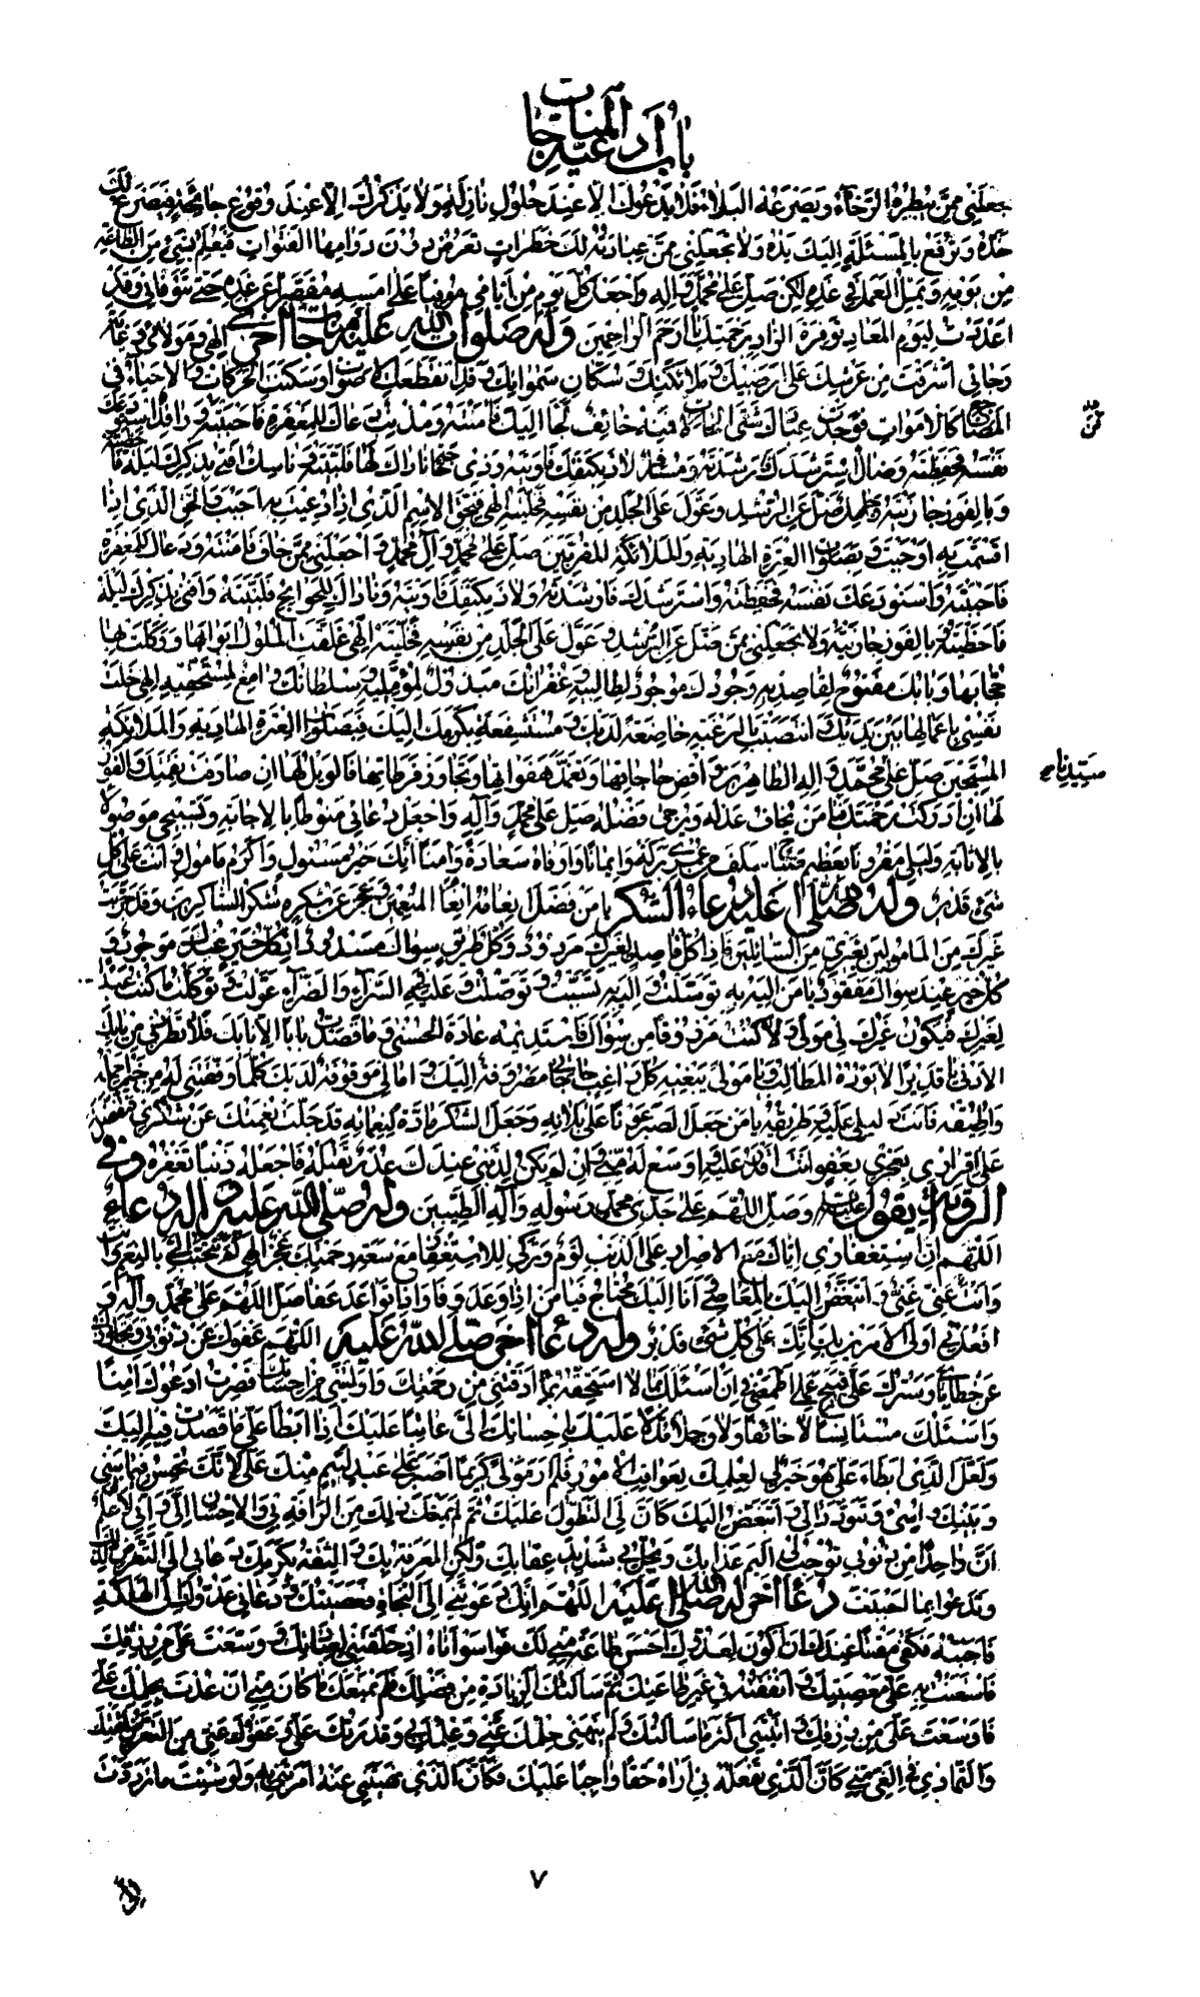 باب أدعية المناجات
جعلني ممن يبطره الرخاء ويصرعه البلاء فلا يدعوك إلا عند حلول نازلة ولا يذكرك إلا عند وقوع جائحة فيضرع لك
خده وترفع بالمسئلة إليك يده ولا تجعلني ممن عبادته لك خطرات تعرض دون دوامها الفترات فيعمل بشيء من الطاعة
من يومه ويمل العمل في غده لكن صل على محمد وآله واجعل كل يوم من أيامي موفيا على أمسه مقصرا عن غده حتى تتوفاني وقد
أعددت ليوم المعاد توفرة الزاد برحمتك يا أرحم الراحمين وله صلوات الله عليه مناجات أخرى إلهي ومولاي وغاية
رجائي أشرقت من عرشك على أرضيك وملائكتك وسكان سمواتك وقد انقطعت الأصوات وسكنت الحركات والأحياء في
المضاجع كالأموات فوجدت عبادك في شتى الحالات فمنه خائف لجأ إليك فآمنته ومذنب دعاك للمغفرة فأجبته وراقد استودعك
نفسه فحفظته وضال استرشدك فأرشدته ومسافر لاذ بكنفك فآويته وذي حاجة ناداك لها فلبيته وناسك أفنى بذكرك ليله فأحظيته
وبالفوز جازيته وجاهل ضل عن الرشد وعول على الجلد من نفسه فخليته إلهي فبحق الاسم الذي إذا دعيت به أجبت والحق الذي إذا
أقسمت به أوجبت وبصلوات العترة الهادية والملائكة المقربين صل على محمد وآل محمد واجعلني ممن خاف فآمنته ودعاك للمغفرة
فأجبته واستودعك نفسه فحفظته واسترشدك فأرشدته ولاذ بكنفك فآويته وناداك للحوائج فلبيته وأفنى بذكرك ليله
فأحظيته وبالفوز جازيته ولا تجعلني ممن ضل عن الرشد وعول على الجلد من نفسه فخليته إلهي غلقت الملوك أبوابها ووكلت بها
حجابها وبابك مفتوح لقاصديه وجودك موجود لطالبيه وغفرانك مبذول لمؤمليه وسلطانك دامغ لمستحقيه إلهي خلت
نفسي بأعمالها بين يديك وانتصبت بالرغبة خاضعة لديك ومستشفعة بكرمك إليك فبصلوات العترة الهادية والملائكة
المسبحين صل على محمد وآله الطاهرين واقض حاجاتها وتغمد هفواتها وتجاوز فرطاتها فالويل لها إن صادفت نقمتك والفوز
لها إن أدركت رحمتك فيا من يخاف عدله ويرجى فضله صل على محمد وآله واجعل دعائي منوطا بالإجابة وتسبيحي موصولا
بالإثابة وليلي مقرونا بعظيم سلف عمري بركة وإيمانا وأوفاه سعادة وأمنا إنك خير مسئول وأكرم مأمول وأنت على كل
شيء قدير وله صلى الله عليه دعاء الشكر يا من فضل إنعامه إنعام المنعمين وعجز عن شكره شكر الشاكرين وقد جربت
غيرك من المأمولين بغيري من السائلين فإذا كل قاصد لغيرك مردود وكل طريق سواك مسدود إذ كل خير عندك موجود و
كل خير عند سواك مفقود يا من إليه به توسلت وإليه به تسببت وتوصلت وعليه في السراء والضراء عولت وتوكلت ما كنت عبدا
لغيرك فيكون غيرك لي مولى ولا كنت مرزوقا من سواك فأستديمه عادة الحسنى وما قصدت بابا إلا بابك فلا تطردني من بابك
الأدنى يا قديرا لا يؤوده المطالب ويا مولى يبغيه كل راغب حاجاتي مصروفة إليك وآمالي موقوفة لديك كلما وفقتني له من خير أحمله
وأطيقه فأنت دليلي عليه وطريقه يا من جعل الصبر عونا على بلائه وجعل الشكر مادة لنعمائه قد جلت نعمتك عن شكري فتفضل
على إقراري بعجزي بعفو أنت أقدر عليه وأوسع له مني وإن لم يكن لذنبي عندك عذر تقبله فاجعله ذنبا تغفره وفي
الرواية يقول وصل اللهم على جدي محمد رسوله وآله الطيبين وله صلى الله عليه الدعاء
اللهم إن استغفاري إياك مع الإصرار على الذنب لؤم وتركي للاستغفار مع سعة رحمتك عجز إلهي كم تتحبب إلي بالنعم
وأنت عني غني وأتبغض إليك بالمعاصي وأنا إليك محتاج فيا من إذا وعد وفا وإذا تواعد عفا صل اللهم على محمد وآله و
افعل بي أولى الأمرين بك إنك على كل شيء قدير وله دعاء آخر صلى الله عليه اللهم عفوك عن ذنوبي وتجاوزك
عن خطاياي وسترك على قبيح عملي أطمعني إن أسئلك ما لا أستحقه بما أذقتني من رحمتك وأوليتني من إحسانك فصرت أدعوك آمنا
وأسئلك مستأنسا لا خائفا ولا وجلا مدلا عليك بإحسانك إلي عاتبا عليك إذا أبطأ علي ما قصدت فيه إليك
ولعل الذي أبطأ علي هو خير لي لعلمك بعواقب الأمور فلم أر مولى كريما أصبر على عبد لئيم منك علي لأنك تحسن فيما بيني
وبينك وأسيء وتتودد إلي وأتبغض إليك كأن لي التطول عليك ثم لم يمنعك ذلك من الرأفة بي والإحسان إلي وإني لأعلم
أن واحدا من ذنوبي توجب لي أليم عذابك ويحل بي شديد عقابك ولكن المعرفة بك والثقة بكرمك دعاني إلى التعرض لذلك
وتدعو بما أحببت دعاء آخر له صلى الله عليه اللهم إنك دعوتني إلى النجاة فعصيتك ودعاني عدوك إلى الهلكة
فأجبته فكفى مقتا عندك أن أكون لعدوك أحسن طاعة مني لك فوا سوأتاه إذ خلقتني لعبادتك ووسعت علي من رزقك
فاستعنت به على معصيتك وأنفقته في غير طاعتك ثم سألتك الزيادة من فضلك فلم يمنعك ما كان مني أن عدت بحلمك علي
فأوسعت علي من رزقك وآتيتني أكثر ما سألتك ولم ينهني حلمك عني وعلمك بي وقدرتك علي وعفوك عني من التعرض لمقتك
والتمادي في الغي مني كأن الذي تفعله بي أراه حقا واجبا عليك فكأن الذي نهيتني عنه أمرتني به ولو شئت ما ترددت
سيدنا
٧